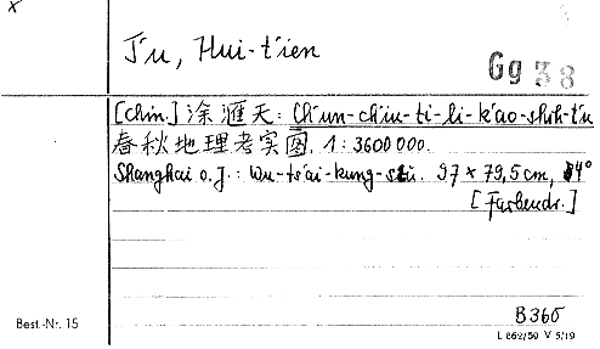 x
T'u, Hui-t'ien
Gg 38
[chin.] 涂滙天: Ch'un-ch'iu-ti-li-k'ao-shih-t'u
春秋地理考实图. 1:3600000.
Shanghai o.J.: Wu-ts'ai-kung-szŭ. 97 x 79,5 cm, 4°
[Farbendr.]
B 365
Best.-Nr. 15
L 862/59 V 5/19